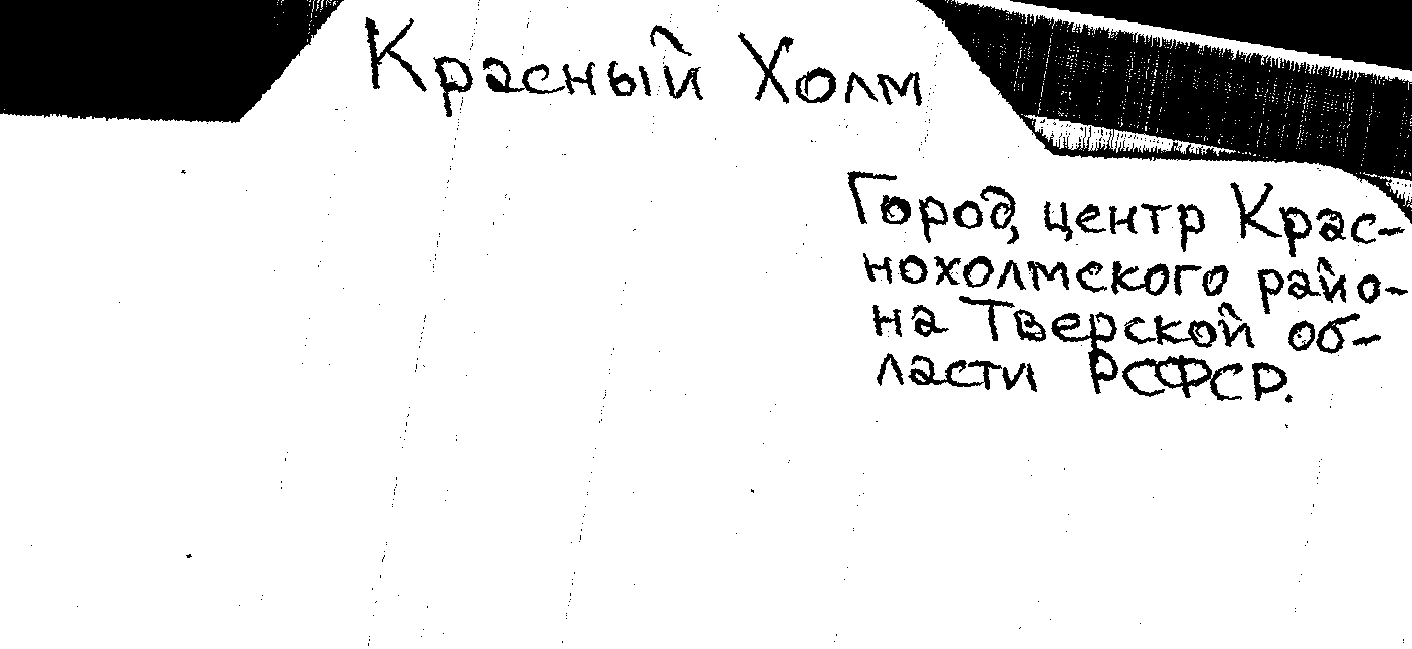 Красный Холм
Город, центр Крас-
нохолмского райо-
на Тверской об-
ласти РСФСР.